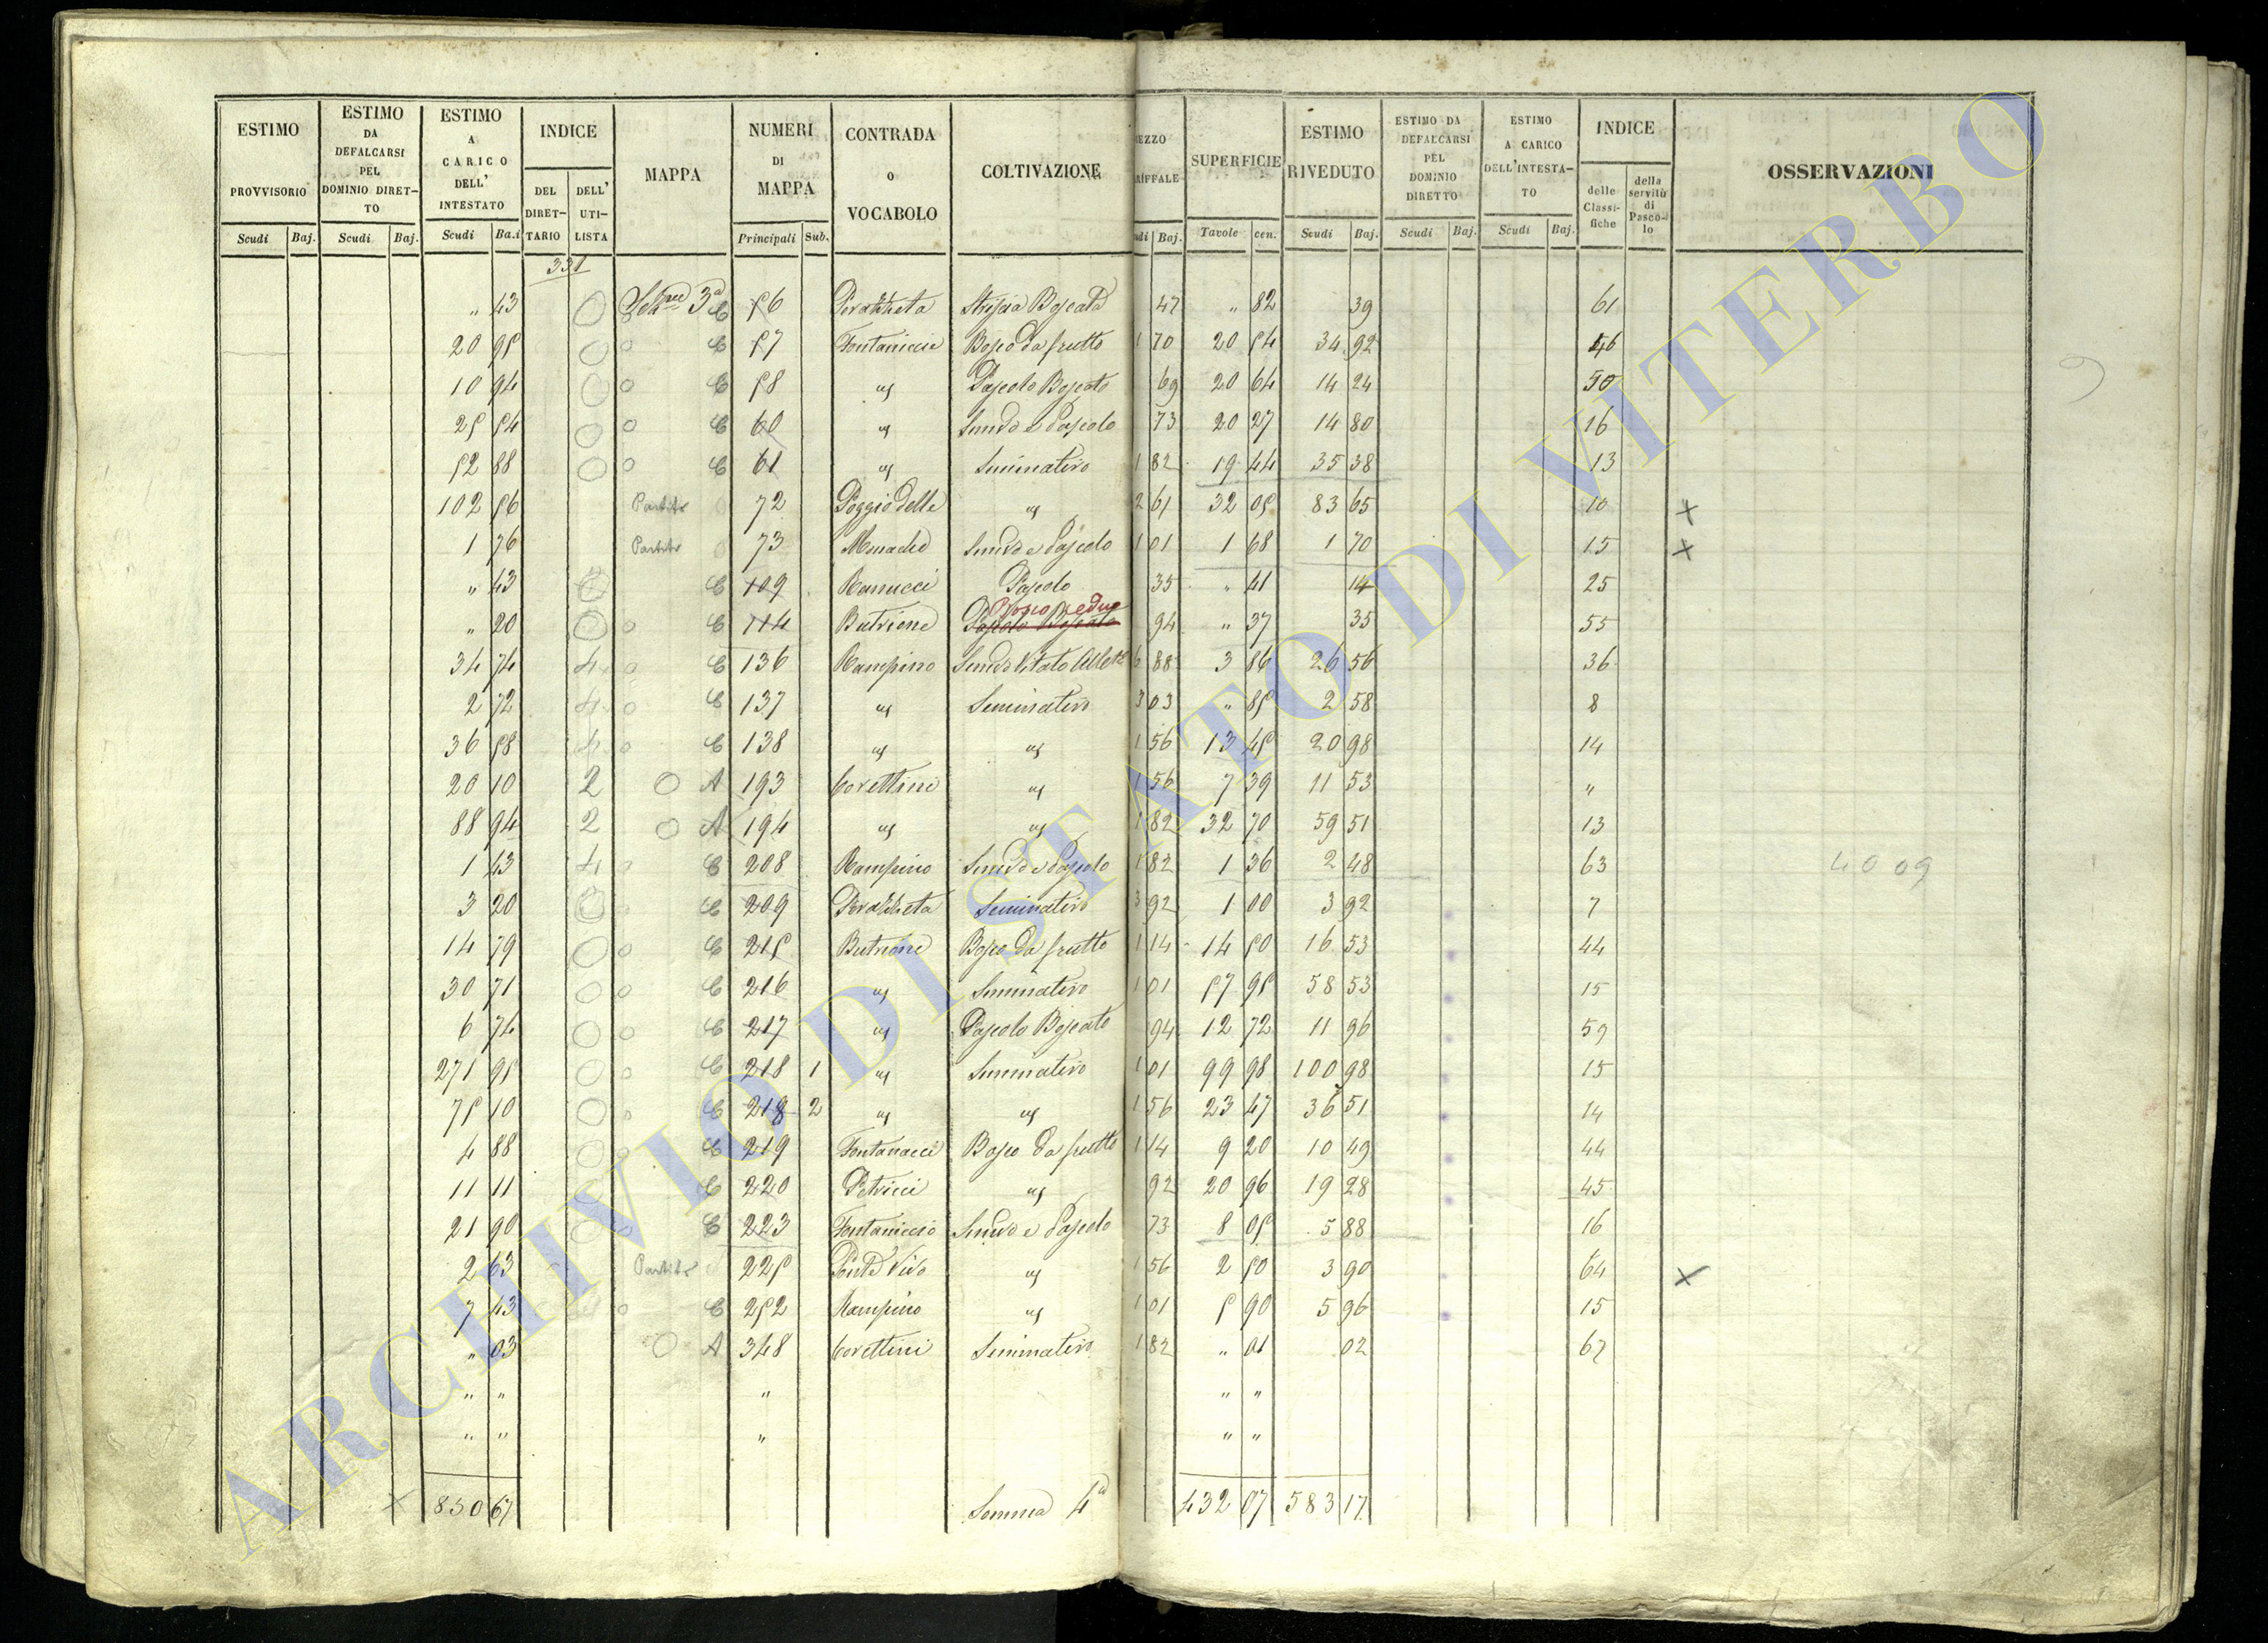 ESTIMO PROVVISORIO Scudi Baj.
ESTIMO DA DEFALCARSI PEL DOMINIO DIRETTO Scudi Baj.
ESTIMO A CARICO DELL' INTESTATO Scudi Ba.i
INDICE DEL DIRETTARIO DELL' UTILISTA
MAPPA
NUMERI DI MAPPA Principali Sub.
CONTRADA O VOCABOLO
COLTIVAZIONE
EZZO RIFFALE udi Baj.
SUPERFICIE Tavole cen.
ESTIMO RIVEDUTO Scudi Baj.
ESTIMO DA DEFALCARSI PEL DOMINIO DIRETTO Scudi Baj.
ESTIMO A CARICO DELL'INTESTATO Scudi Baj.
INDICE delle Classifiche della servitù di Pascolo
OSSERVAZIONI
331
" 43 3a C 56 47 " 82 39 61
20 95 C 57 Bosco da frutto 1 70 20 54 34 92 46
10 94 C 58 " Pascolo Boscato 69 20 64 14 24 50
25 54 C 60 " Semvo e Pascolo 73 20 27 14 80 16
52 88 C 61 " Seminativo 1 82 19 44 35 38 13
102 56 Partito 72 Poggio delle " 2 61 32 05 83 65 10 x
1 76 Partito 73 Monache Semvo e Pascolo 1 01 1 68 1 70 15 x
" 43 C 109 Ranucci Pascolo 35 " 41 14 25
" 20 C 114 Butrione Pascolo Boscato Bosco Ceduo 94 " 37 35 55
34 74 4 C 136 Rampino Semvo Vitato 6 88 3 86 26 56 36
2 72 4 C 137 " Seminativo 3 03 " 85 2 58 8
36 58 4 C 138 " " 1 56 13 45 20 98 14
20 10 2 A 193 Corettini " 1 56 7 39 11 53 "
88 94 2 A 194 " " 1 82 32 70 59 51 13
1 43 4 C 208 Rampino Semvo e Pascolo 1 82 1 36 2 48 63 4009
3 20 C 209 Seminativo 3 92 1 00 3 92 7
14 79 C 215 Butrione Bosco da frutto 1 14 14 50 16 53 44
30 71 C 216 " Seminativo 1 01 57 95 58 53 15
6 74 C 217 " Pascolo Boscato 94 12 72 11 96 59
271 95 C 218 1 " Seminativo 1 01 99 98 100 98 15
75 10 C 218 2 " " 1 56 23 47 36 51 14
4 88 C 219 Fontanacce Bosco da frutto 1 14 9 20 10 49 44
11 11 C 220 Petricci " 92 20 96 19 28 45
21 90 C 223 Semvo e Pascolo 73 8 05 5 88 16
2 63 Partito 225 " 1 56 2 50 3 90 64 x
7 43 C 252 Rampino " 1 01 5 90 5 96 15
" 03 A 348 Corettini Seminativo 1 82 " 01 02 67
" " " " "
" " " " "
x 830 67 Somma 4a 432 07 583 17
ARCHIVIO DI STATO DI VITERBO